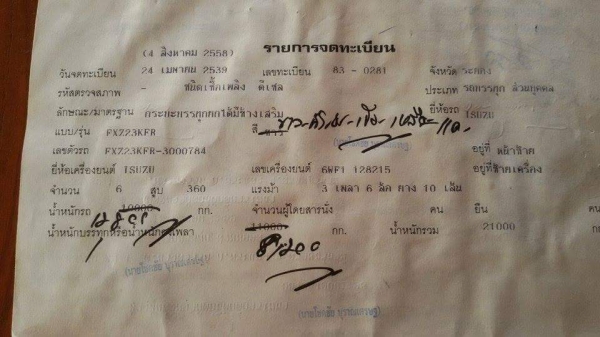 (4 สิงหาคม 2558) รายการจดทะเบียน
วันจดทะเบียน 24 เมษายน 2539 เลขทะเบียน 83-0281 จังหวัด ระยอง
รหัสตรวจสภาพ - ชนิดเชื้อเพลิง ดีเซล ประเภท รถการทุก ส่วนบุคคล
ลักษณะ/มาตรฐาน กระบะบรรทุกยกได้มีข้างเสริม ยี่ห้อรถ ISUZU
แบบ/รุ่น FXZ23KFR สี ขาว
เลขตัวรถ FXZ23KFR-3000784 อยู่ที่ หย้าซ้าย
ยี่ห้อเครื่องยนต์ ISUZU เลขเครื่องยนต์ 6WF1 128215 อยู่ที่ซ้ายเครื่อง
จำนวน 6 สูบ 360 แรงม้า 3 เพลา 6 ล้อ ยาง 10 เส้น
น้ำหนักรถ 10000 กก. จำนวนผู้โดยสารนั่ง คน ยืน คน
น้ำหนักบรรทุกหรือน้ำหนักลงเพลา 11000 กก. น้ำหนักรวม 21000 กก.
8,200